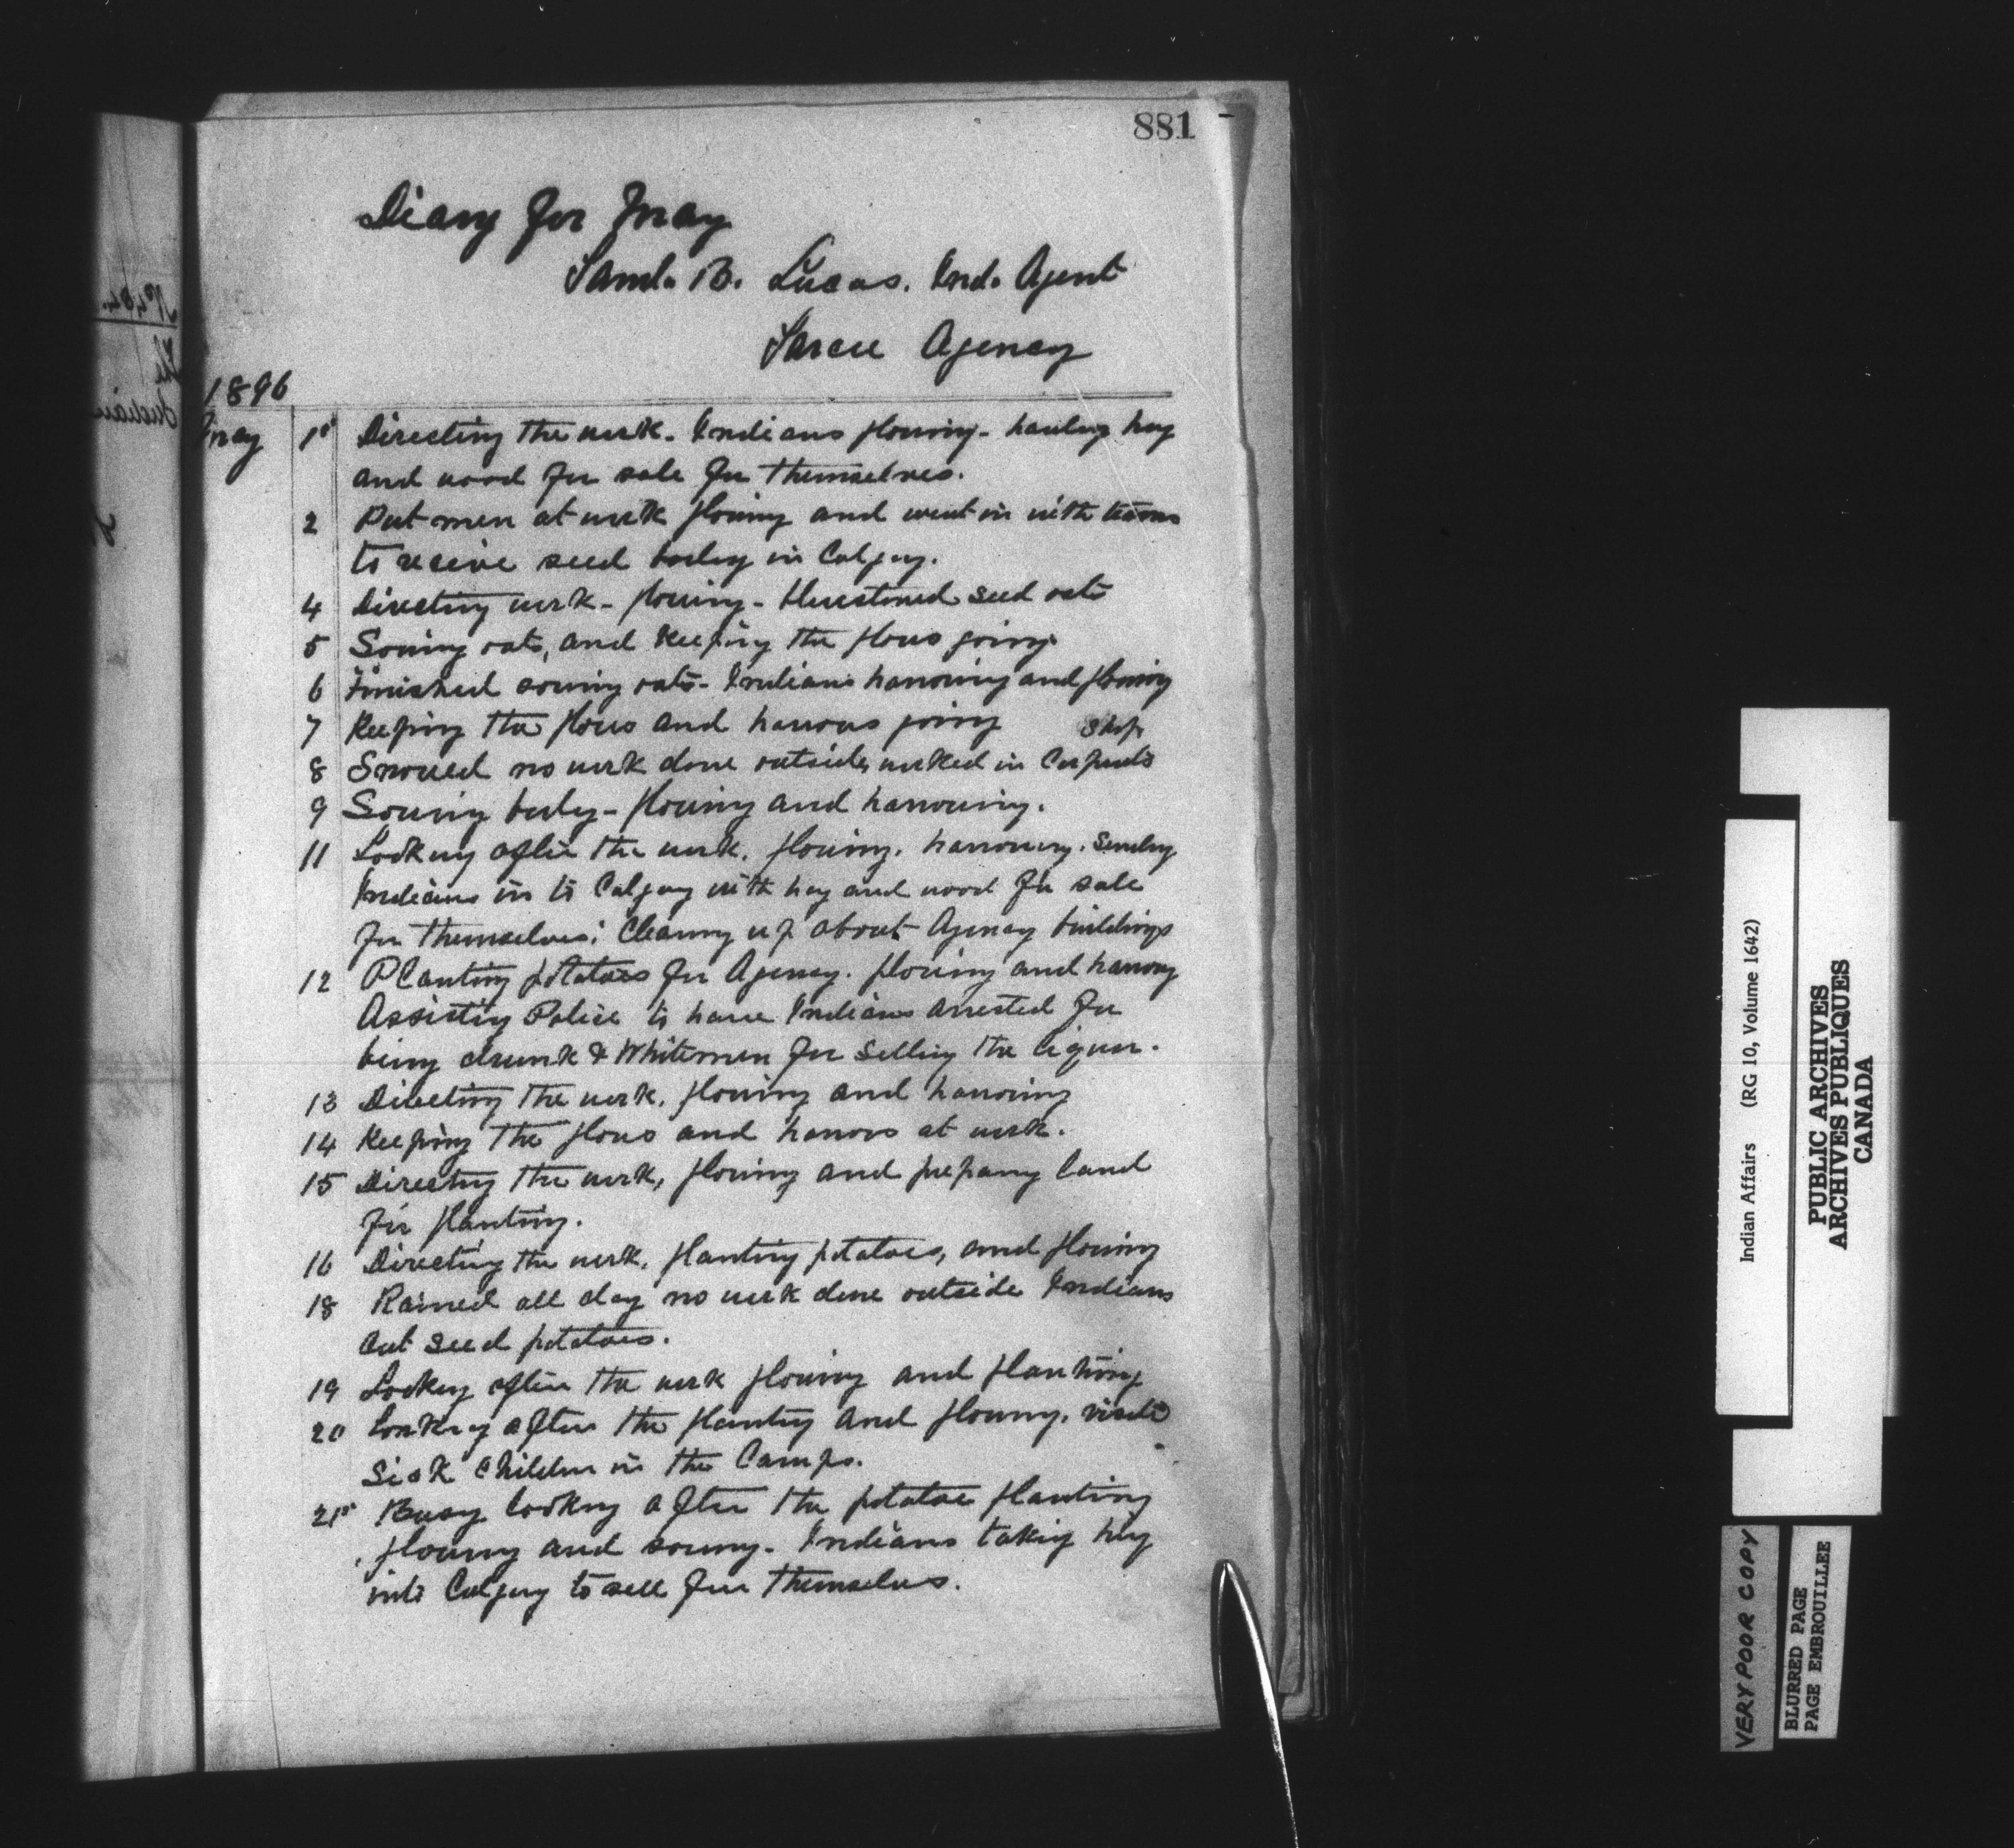 881
Diary for May
Saml. B. Lucas. Ind. Agent
Sarcee Agency
1896
May 1st Directing the work - Indians plowing - hauling hay
and wood for sale for themselves.
2 Put men at work plowing and went in with teams
to receive seed barley in Calgary.
4 Directing work - plowing - bluestoned seed oats
5 Sowing oats, and keeping the plows going
6 Finished sowing oats - Indians harrowing and plowing
7 Keeping the plows and harrows going
8 Snowed no work done outside, worked in Carpenters Shop
9 Sowing barley - plowing and harrowing.
11 Looking after the work, plowing, harrowing. Sending
Indians in to Calgary with hay and wood for sale
for themselves; Cleaning up about Agency buildings
12 Planting potatoes for Agency. plowing and harrowing
Assisting Police to have Indians arrested for
being drunk & Whitemen for Selling the liquor.
13 Directing the work, plowing and harrowing
14 Keeping the plows and harrows at work.
15 Directing the work, plowing and preparing land
for planting.
16 Directing the work, planting potatoes, and plowing
18 Rained all day no work done outside Indians
Cut Seed potatoes.
19 Looking after the work plowing and planting
20 Looking after the planting and plowing. visited
Sick Children in the Camps.
21st Busy looking after the potatoe planting
plowing and sowing - Indians taking hay
into Calgary to sell for themselves.
Indian Affairs (RG 10, Volume 1642)
PUBLIC ARCHIVES
ARCHIVES PUBLIQUES
CANADA
VERY POOR COPY
BLURRED PAGE
PAGE EMBROUILLEE